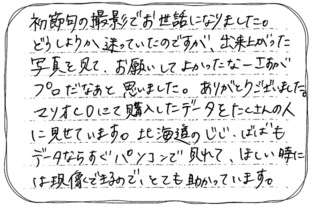 初節句の撮影でお世話になりました。
どうしようか、迷っていたのですが、出来上がった
写真を見て、お願いしてよかったなー!!さすが
プロだなぁと思いました。ありがとうございました。
CDにて購入したデータをたくさんの人
に見せています。北海道のじじ、ばばも
データならすぐパソコンで見れて、ほしい時に
は現像できるので、とても助かっています。